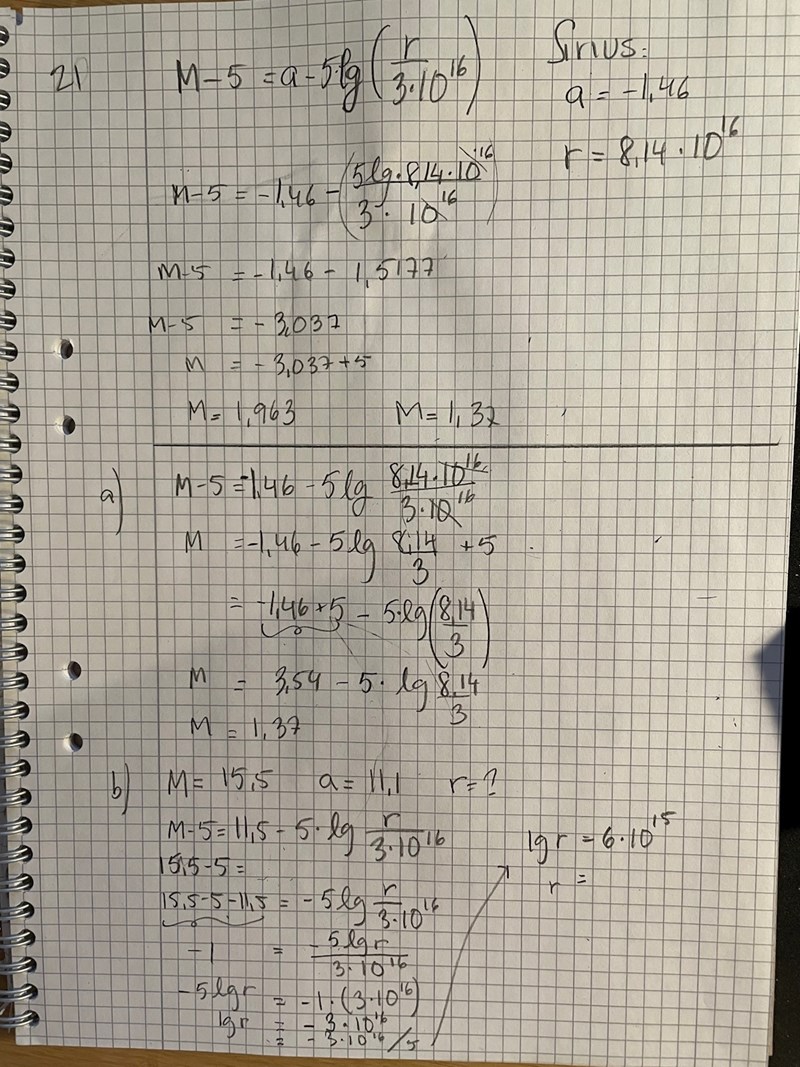 21
M-5 = a-5·lg(r/3·10^16)
Sirius:
a = -1,46
r = 8,14·10^16
M-5 = -1,46 - (5lg·8,14·10^16/3·10^16)
M-5 = -1,46 - 1,5177
M-5 = -3,037
M = -3,037+5
M = 1,963 M = 1,37
a) M-5 = -1,46 - 5lg 8,14·10^16/3·10^16
M = -1,46 - 5lg 8,14/3 + 5
= -1,46+5 - 5·lg(8,14/3)
M = 3,54 - 5·lg 8,14/3
M = 1,37
b) M = 15,5 a = 11,1 r = ?
M-5 = 11,5 - 5·lg r/3·10^16
15,5-5 =
15,5-5-11,5 = -5lg r/3·10^16
-1 = -5lgr/3·10^16
-5lgr = -1·(3·10^16)
lgr = -3·10^16
= -3·10^16/5
lgr = 6·10^15
r =